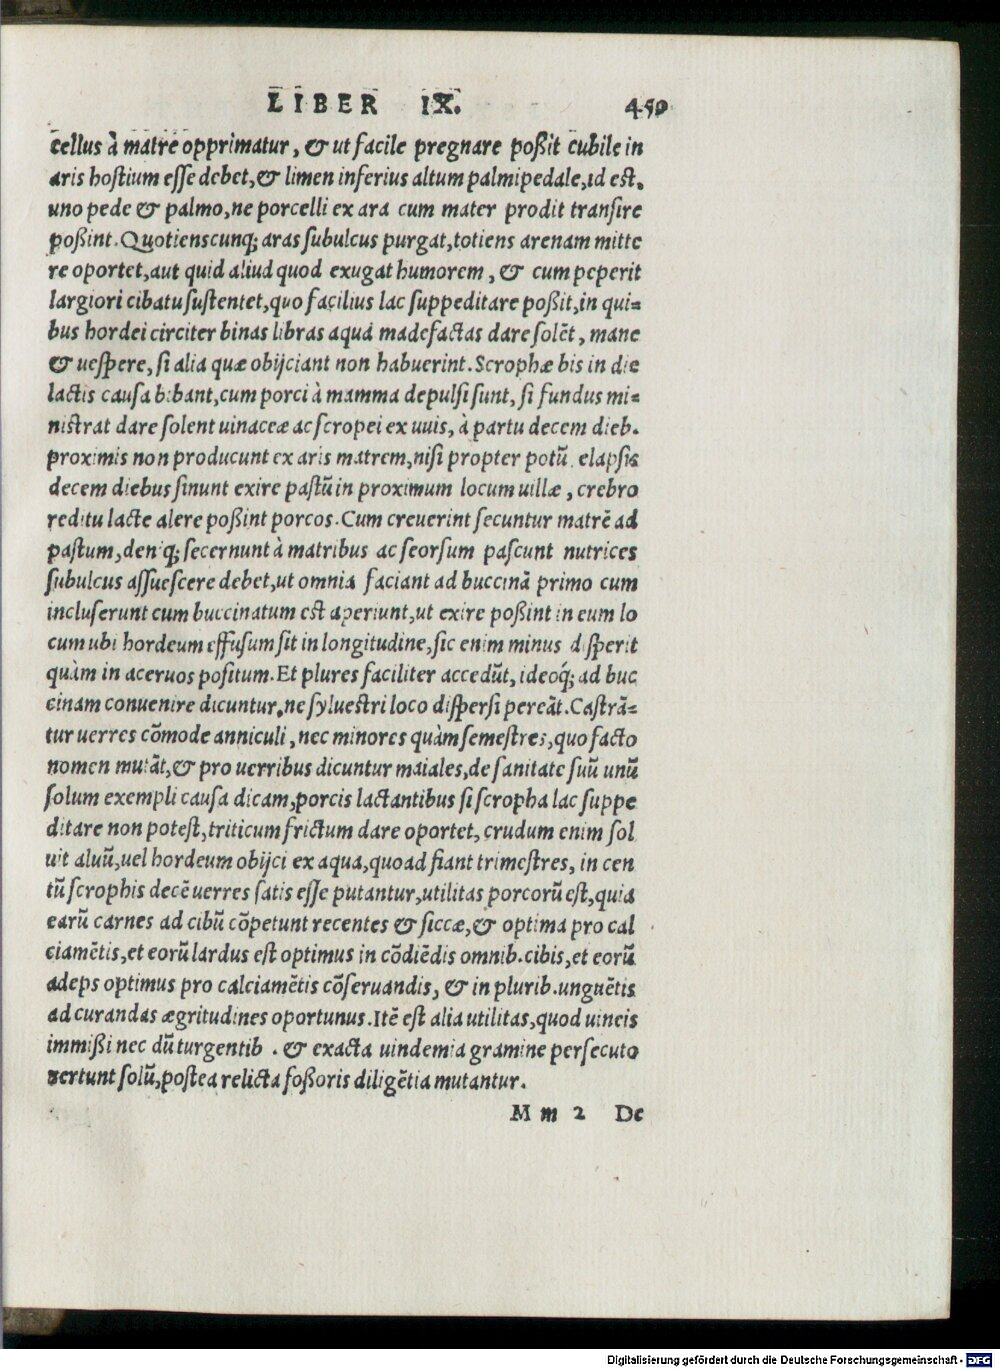 LIBER IX. 450
cellus à matre opprimatur, & ut facile pregnare poßit cubile in
aris hostium esse debet, & limen inferius altum palmipedale, id est,
uno pede & palmo, ne porcelli ex ara cum mater prodit transire
poßint. Quotienscunq; aras subulcus purgat, totiens arenam mitte
re oportet, aut quid aliud quod exugat humorem, & cum peperit
largiori cibatu sustentet, quo facilius lac suppeditare poßit, in qui=
bus hordei circiter binas libras aqua madefactas dare solēt, mane
& uespere, si alia quæ obijciant non habuerint. Scrophæ bis in die
lactis causa bibant, cum porci à mamma depulsi sunt, si fundus mi=
nistrat dare solent uinaceæ ac scropei ex uuis, à partu decem dieb.
proximis non producunt ex aris matrem, nisi propter potū. elapsis
decem diebus sinunt exire pastū in proximum locum uillæ, crebro
reditu lacte alere poßint porcos. Cum creuerint secuntur matrē ad
pastum, deniq; secernunt à matribus ac seorsum pascunt nutrices
subulcus assuescere debet, ut omnia faciant ad buccinā primo cum
incluserunt cum buccinatum est aperiunt, ut exire poßint in eum lo
cum ubi hordeum effusum sit in longitudine, sic enim minus disperit
quàm in aceruos positum. Et plures faciliter accedūt, ideoq́; ad buc
cinam conuenire dicuntur, ne syluestri loco dispersi pereāt. Castrā=
tur uerres cōmode anniculi, nec minores quàm semestres, quo facto
nomen mutāt, & pro uerribus dicuntur maiales, de sanitate suū unū
solum exempli causa dicam, porcis lactantibus si scropha lac suppe
ditare non potest, triticum frictum dare oportet, crudum enim sol
uit aluū, uel hordeum obijci ex aqua, quoad fiant trimestres, in cen
tū scrophis decē uerres satis esse putantur, utilitas porcorū est, quia
earū carnes ad cibū cōpetunt recentes & siccæ, & optima pro cal
ciamētis, et eorū lardus est optimus in cōdiēdis omnib. cibis, et eorū
adeps optimus pro calciamētis cōseruandis, & in plurib. unguētis
ad curandas ægritudines oportunus. Itē est alia utilitas, quod uineis
immißi nec dū turgentib. & exacta uindemia gramine persecuto
uertunt solū, postea relicta foßoris diligētia mutantur.
Mm 2 De
Digitalisierung gefördert durch die Deutsche Forschungsgemeinschaft - DFG